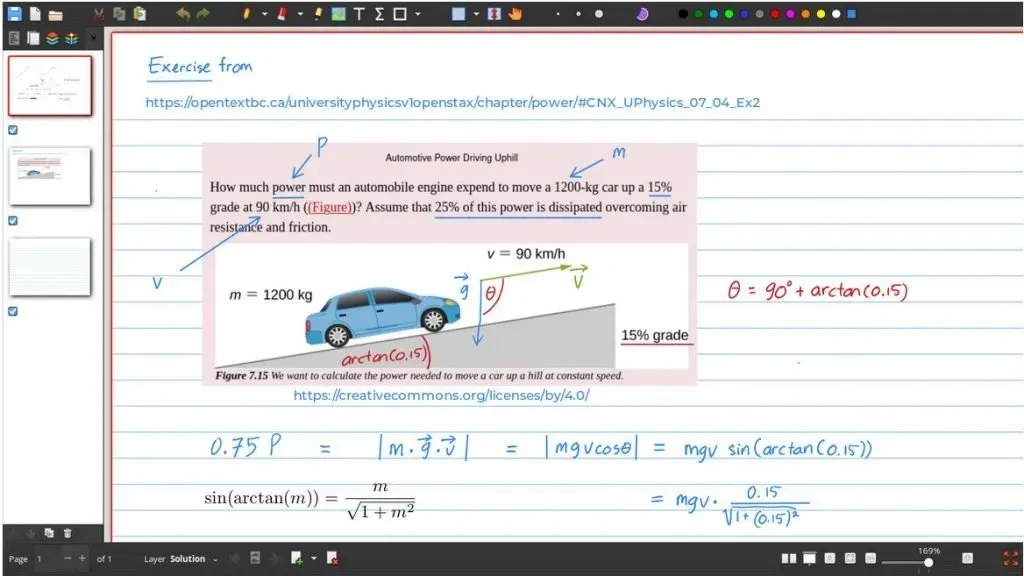 Exercise from
https://opentextbc.ca/universityphysicsv1openstax/chapter/power/#CNX_UPhysics_07_04_Ex2
P
m
Automotive Power Driving Uphill
How much power must an automobile engine expend to move a 1200-kg car up a 15%
grade at 90 km/h ((Figure))? Assume that 25% of this power is dissipated overcoming air
resistance and friction.
v
v = 90 km/h
m = 1200 kg
g⃗
θ
v⃗
θ = 90° + arctan(0.15)
15% grade
arctan(0.15)
Figure 7.15 We want to calculate the power needed to move a car up a hill at constant speed.
https://creativecommons.org/licenses/by/4.0/
0.75 P = |m · g⃗ · v⃗| = |mgvcosθ| = mgv sin(arctan(0.15))
sin(arctan(m)) = m/√(1 + m²) = mgv · 0.15/√(1 + (0.15)²)
Page 1 − + of 1 Layer Solution 169%